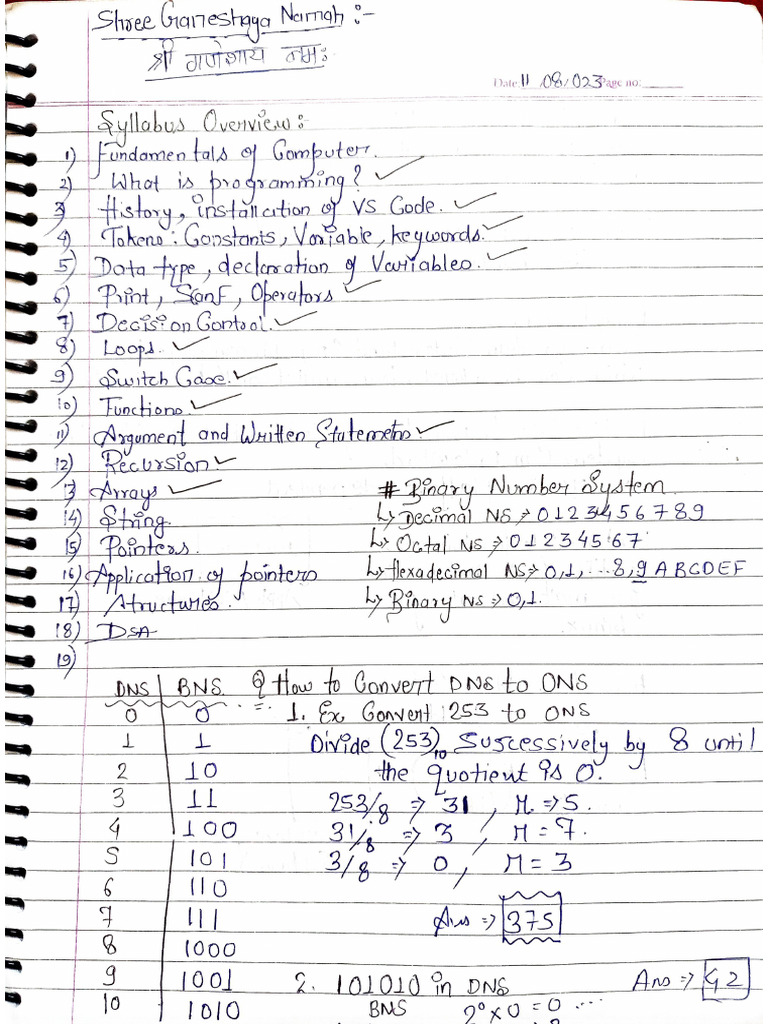 Shree Ganeshaya Namah :-
श्री गणेशाय नमः
Date 11/08/023 Page no:
Syllabus Overview :-
1) Fundamentals of Computer.
2) What is programming? ✓
3) History, installation of VS Code. ✓
4) Tokens : Constants, Variable, keywords. ✓
5) Data type, declaration of Variables. ✓
6) Print, Scanf, Operators ✓
7) Decision Control. ✓
8) Loops. ✓
9) Switch Case. ✓
10) Functions. ✓
11) Argument and Written Statements ✓
12) Recursion ✓
13 Arrays ✓
14) String
15) Pointers.
16) Application of pointers
17) Structures.
18) DSA
19)
# Binary Number System
↳ Decimal NS → 0 1 2 3 4 5 6 7 8 9
↳ Octal NS → 0 1 2 3 4 5 6 7
↳ Hexadecimal NS → 0,1, ...8,9 A B C D E F
↳ Binary NS ⇒ 0,1.
DNS BNS.
0 0
1 1
2 10
3 11
4 100
5 101
6 110
7 111
8 1000
9 1001
10 1010
Q How to Convert DNS to ONS
1. Ex Convert 253 to ONS
Divide (253)10 Suscessively by 8 until
the quotient is 0.
253/8 ⇒ 31, r ⇒ 5.
31/8 ⇒ 3, r = 7.
3/8 ⇒ 0, r = 3
Ans ⇒ 375
2. 101010 in DNS Ans ⇒ 42
BNS 2⁰ × 0 = 0 ...